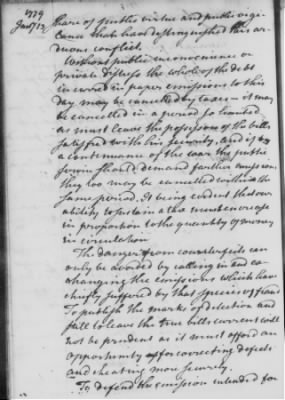 1779
Jany 13
share of public virtue and public vigi-
lance that has distinguished this ar-
duous conflict.
Without public inconvenience or
private distress the whole of the debt
incurred in paper emissions to this
day may be cancelled by taxes - it may
be cancelled in a period so limited
as must leave the possessor of the bills
satisfied with his security, and if by
a continuance of the war the public
service should demand farther emissions
they too may be cancelled within the
same period. It being evident that our
ability to sustain a tax must encrease
in proportion to the quantity of money
in circulation
The danger from counterfeits can
only be avoided by calling in and ex-
changing the emissions which have
chiefly suffered by that species of fraud
To publish the marks of detection and
fail to leave the true bills current will
not be prudent as it must afford an
opportunity of correcting defects
and cheating more securely.
To defend the emission intended for